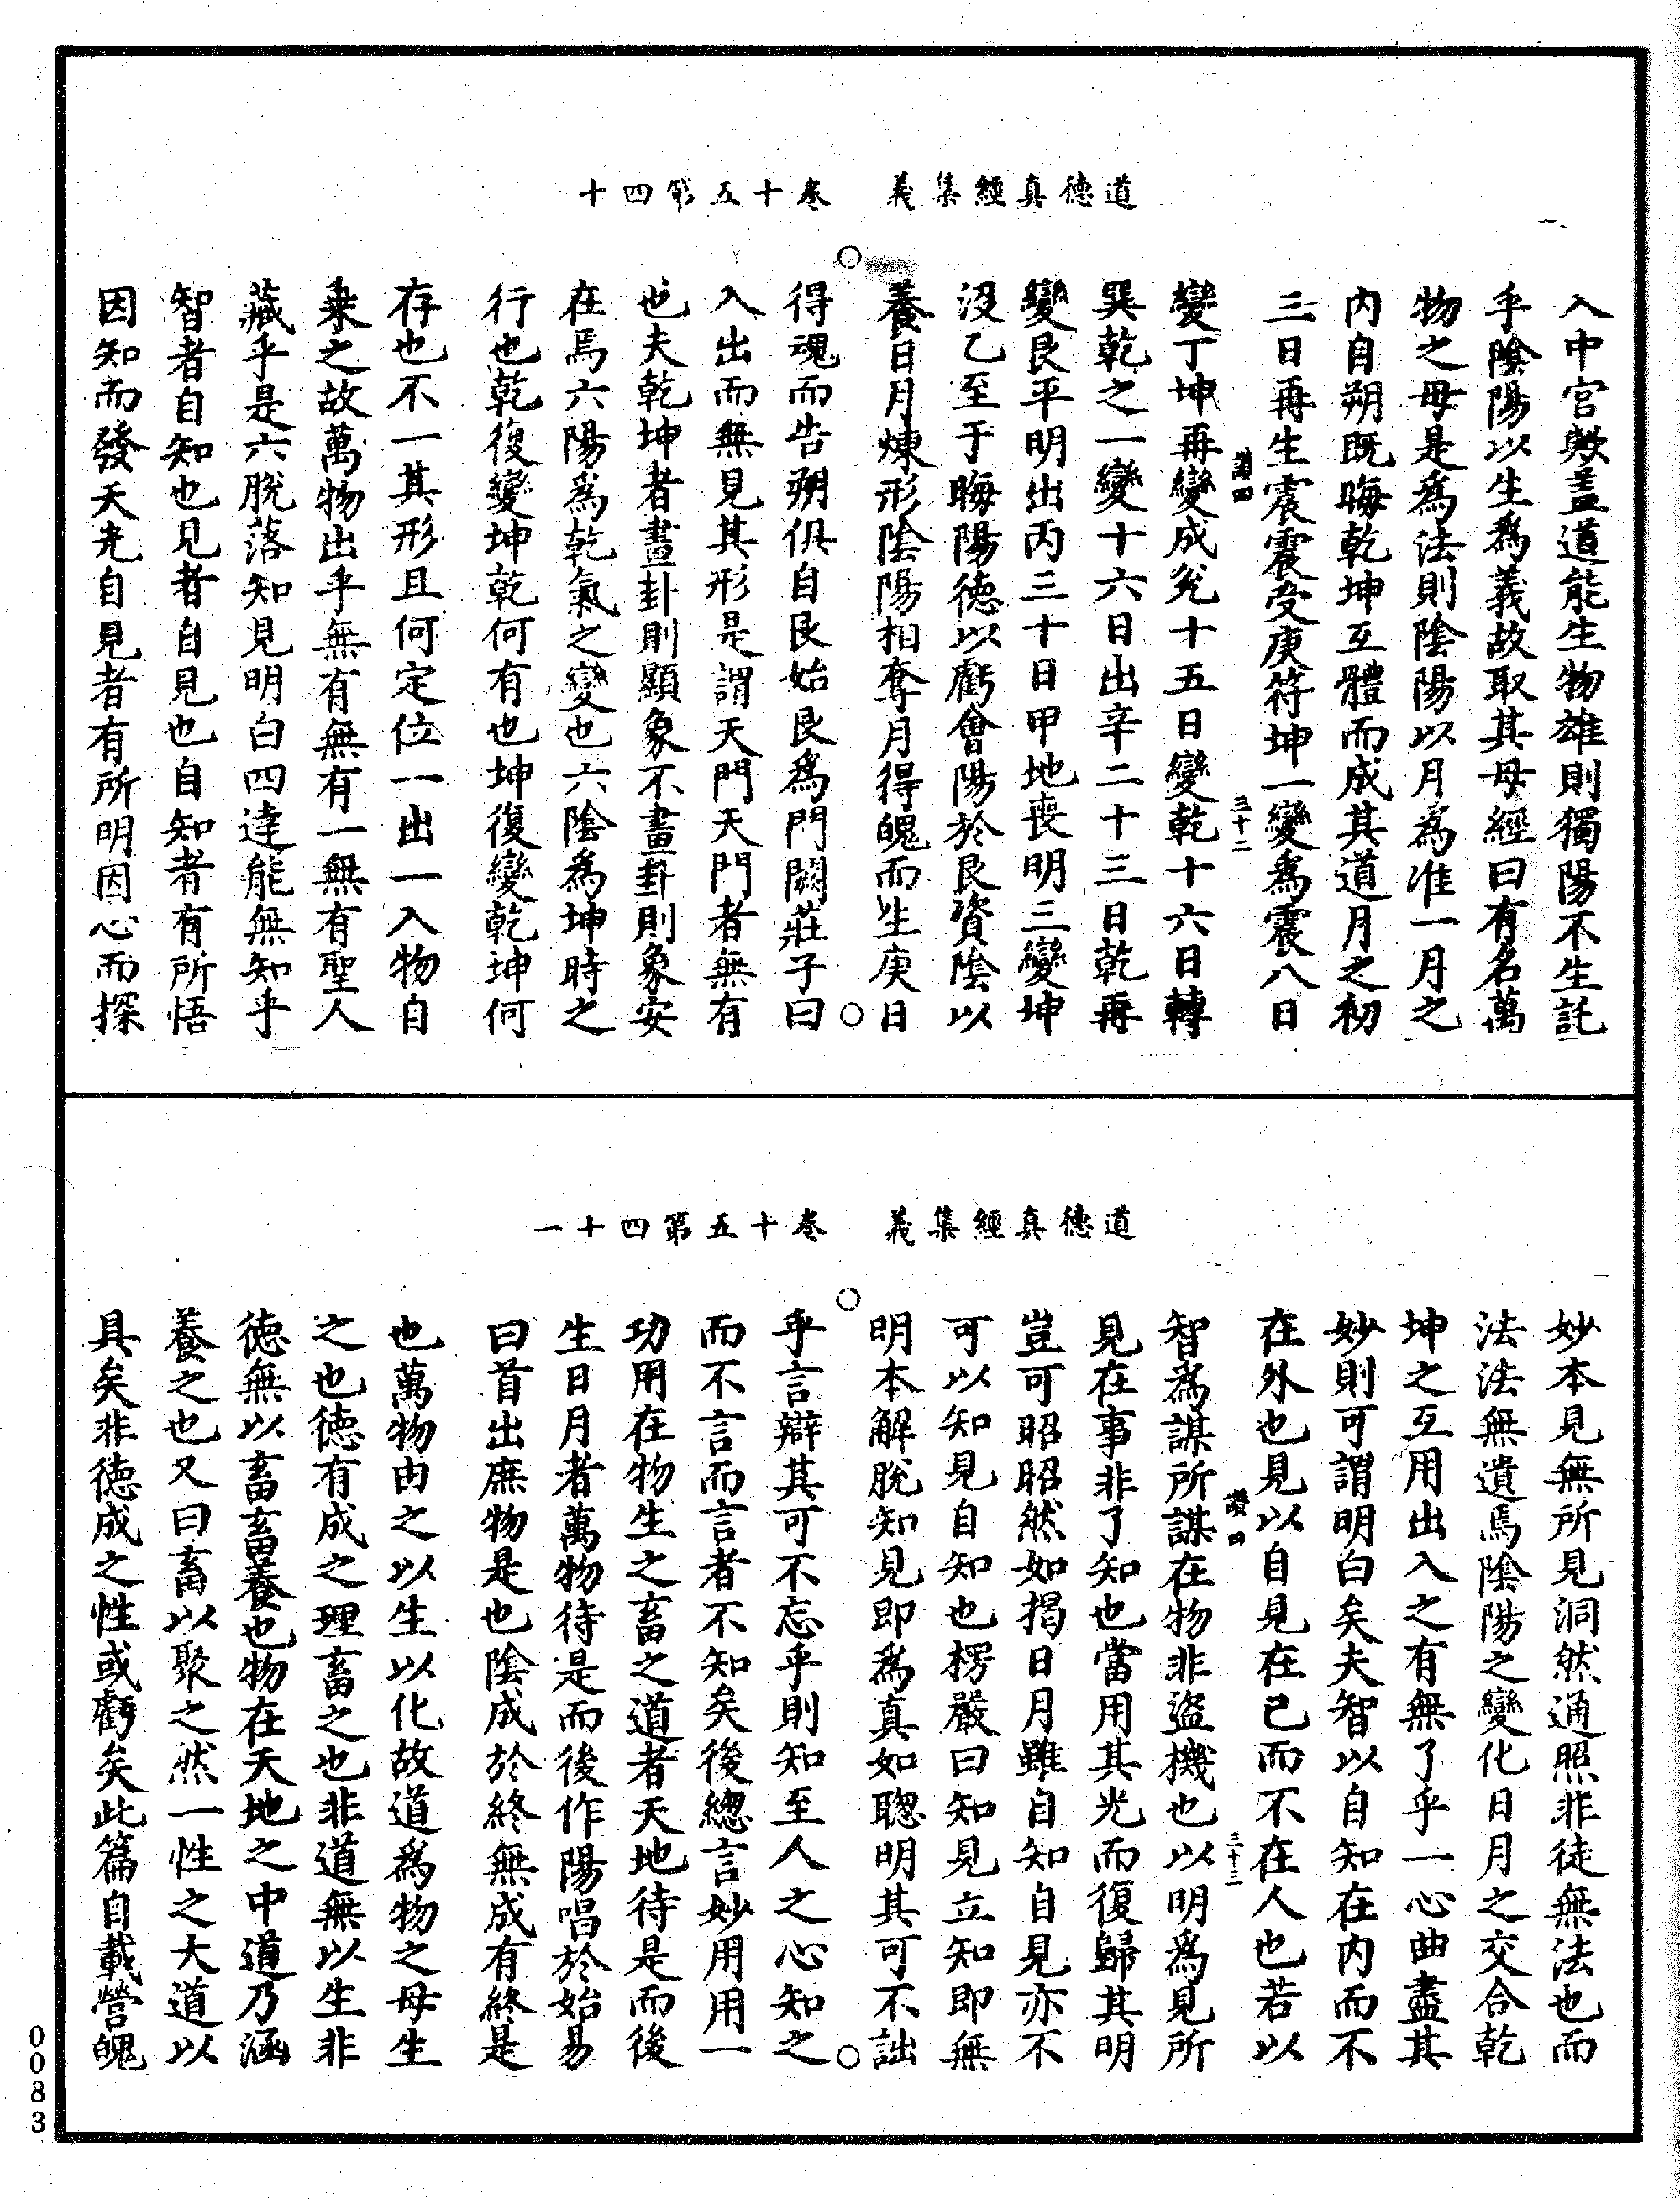 道德真經集義　卷十五第四十
入中宮歟蓋道能生物雄則獨陽不生託
乎陰陽以生為義故取其母經曰有名萬
物之母是為法則陰陽以月為准一月之
內自朔既晦乾坤互體而成其道月之初
三日再生震震受庚符坤一變為震八日
三十二
變丁坤再變成兌十五日變乾十六日轉
巽乾之一變十六日出辛二十三日乾再
變艮平明出丙三十日甲地喪明三變坤
沒乙至于晦陽德以虧會陽於艮資陰以
養日月煉形陰陽相奪月得魄而生庚日
得魂而告朔俱自艮始艮為門闕莊子曰
入出而無見其形是謂天門天門者無有
也夫乾坤者畫卦則顯象不畫卦則象安
在焉六陽為乾氣之變也六陰為坤時之
行也乾復變坤乾何有也坤復變乾坤何
存也不一其形且何定位一出一入物自
乘之故萬物出乎無有無有一無有聖人
藏乎是六脫落知見明白四達能無知乎
智者自知也見者自見也自知者有所悟
因知而發天光自見者有所明因心而探
道德真經集義　卷十五第四十一
妙本見無所見洞然通照非徒無法也而
法法無遺焉陰陽之變化日月之交合乾
坤之互用出入之有無了乎一心曲盡其
妙則可謂明白矣夫智以自知在內而不
在外也見以自見在己而不在人也若以
讚四　三十三
智為謀所謀在物非盜機也以明為見所
見在事非了知也當用其光而復歸其明
豈可昭昭然如揭日月雖自知自見亦不
可以知見自知也楞嚴曰知見立知即無
明本解脫知見即為真如聰明其可不詘
乎言辯其可不忘乎則知至人之心知之
而不言而言者不知矣後總言妙用用一
功用在物生之畜之道者天地待是而後
生日月者萬物待是而後作陽唱於始易
曰首出庶物是也陰成於終無成有終是
也萬物由之以生以化故道為物之母生
之也德有成之理畜之也非道無以生非
德無以畜畜養也物在天地之中道乃涵
養之也又曰畜以聚之然一性之大道以
具矣非德成之性或虧矣此篇自載營魄
0083